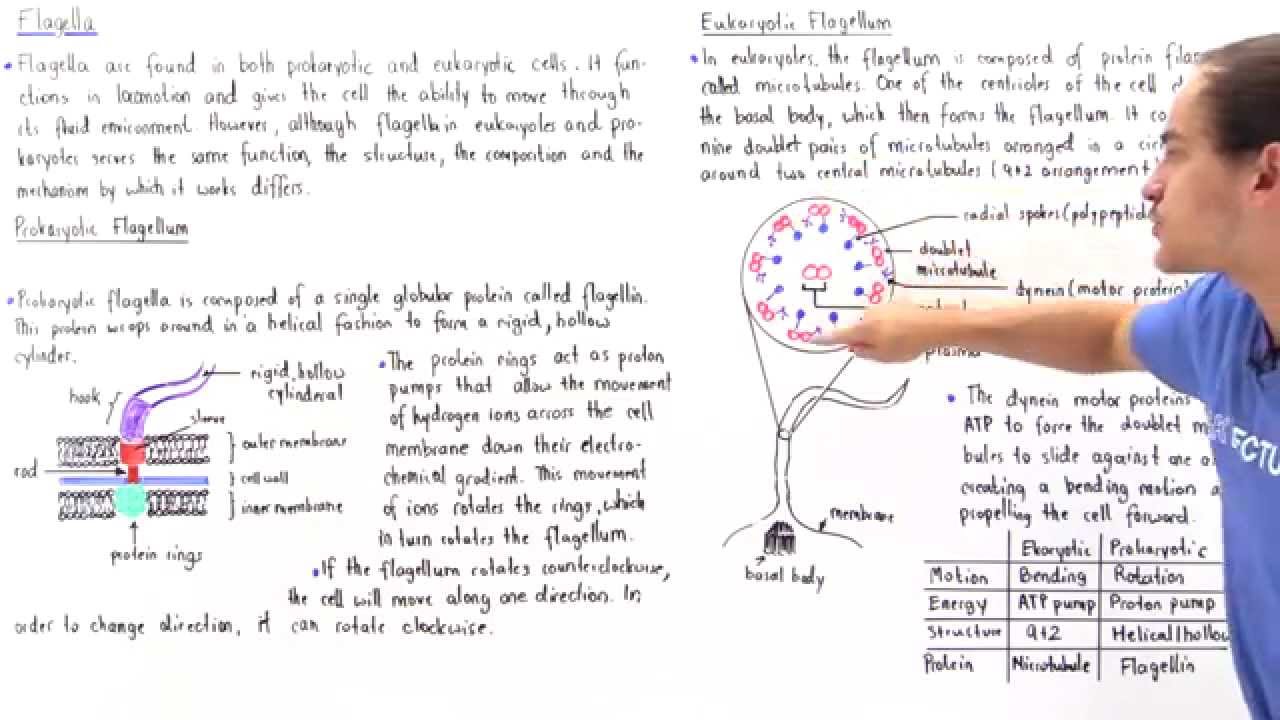 Flagella
• Flagella are found in both prokaryotic and eukaryotic cells. It fun-
ctions in locomotion and gives the cell the ability to move through
its fluid environment. However, although flagella in eukaryotes and pro-
karyotes serves the same function, the structure, the composition and the
mechanism by which it works differs.
Prokaryotic Flagellum
• Prokaryotic flagella is composed of a single globular protein called flagellin.
This protein wraps around in a helical fashion to form a rigid, hollow
cylinder.
hook
rigid, hollow
cylinderal
sleeve
outer membrane
rod
cell wall
inner membrane
protein rings
• The protein rings act as proton
pumps that allow the movement
of hydrogen ions across the cell
membrane down their electro-
chemical gradient. This movement
of ions rotates the rings, which
in turn rotates the flagellum.
• If the flagellum rotates counterclockwise,
the cell will move along one direction. In
order to change direction, it can rotate clockwise.
Eukaryotic Flagellum
• In eukaryotes, the flagellum is composed of protein
called microtubules. One of the centrioles of the cell
the basal body, which then forms the flagellum. It
nine doublet pairs of microtubules arranged in a
around two central microtubules (9+2 arrangement
radial spokes (polypeptid
doublet
microtubule
dynein (motor protein)
plasma
membrane
basal body
• The dynein motor proteins
ATP to force the doublet
bules to slide against one
creating a bending motion
propelling the cell forward.
Ekaryotic Prokaryotic
Motion Bending Rotation
Energy ATP pump Proton pump
Structure 9+2 Helical/hollow
Protein Microtubule Flagellin
ECTU